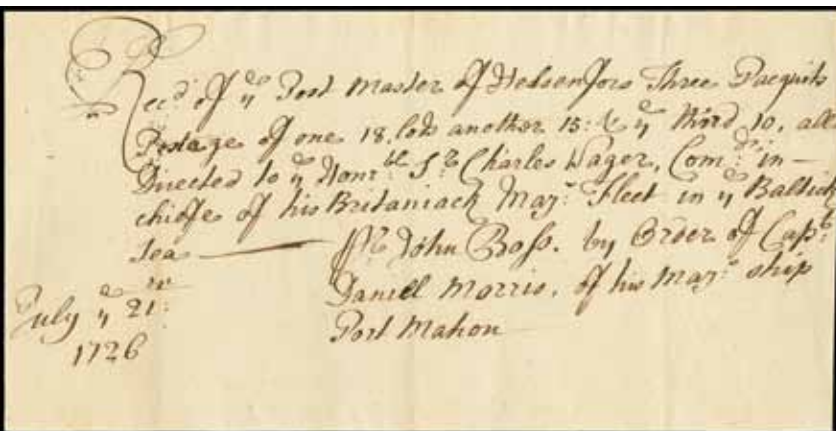 Rec.d of ye Post Master of Helsenfors Three Pacquits
Postage of one 18. lots another 15: & ye third 10, all
Directed to ye Honr.ble S.r Charles Wager, Com.dr in—
chiefe of his Britaniack Maj.s Fleet in ye Baltick
Sea — P.r John Boss. by Order of Cap.t
Daniell Morris, of his Maj.s ship
Port Mahon
July ye 21:
1726